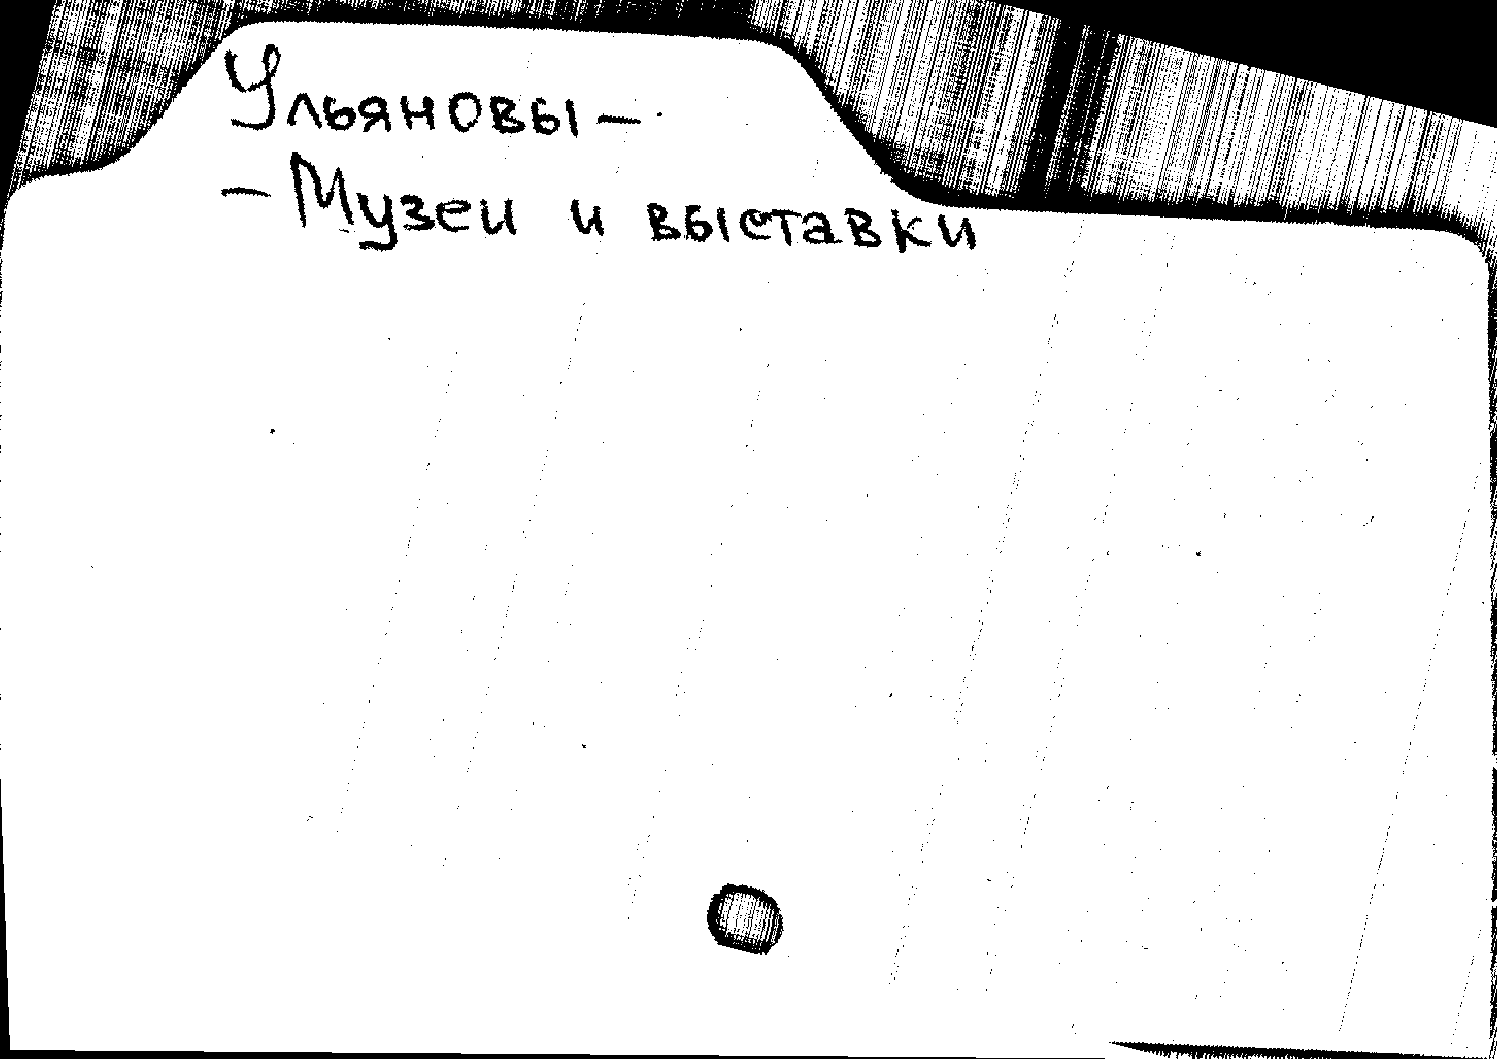 Ульяновы –
– Музеи и выставки